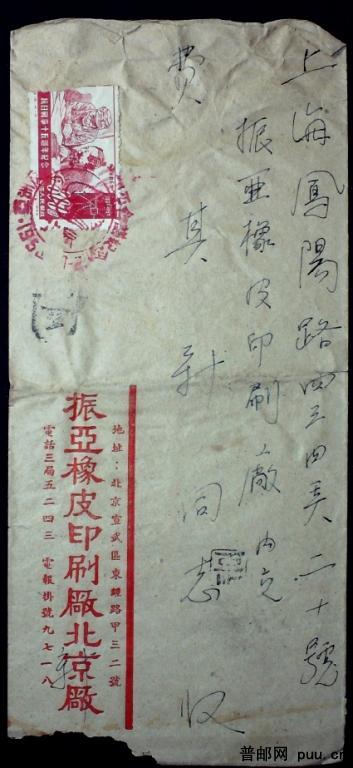 上海鳳陽路四三四弄二十號
振亞橡皮印刷廠內交
費其新同志 收
抗日戰爭十五週年紀念
地址：北京宣武區東經路甲三二號
振亞橡皮印刷廠北京廠
電話三局五二四三 電報掛號九七一八
普邮网 puu.cn